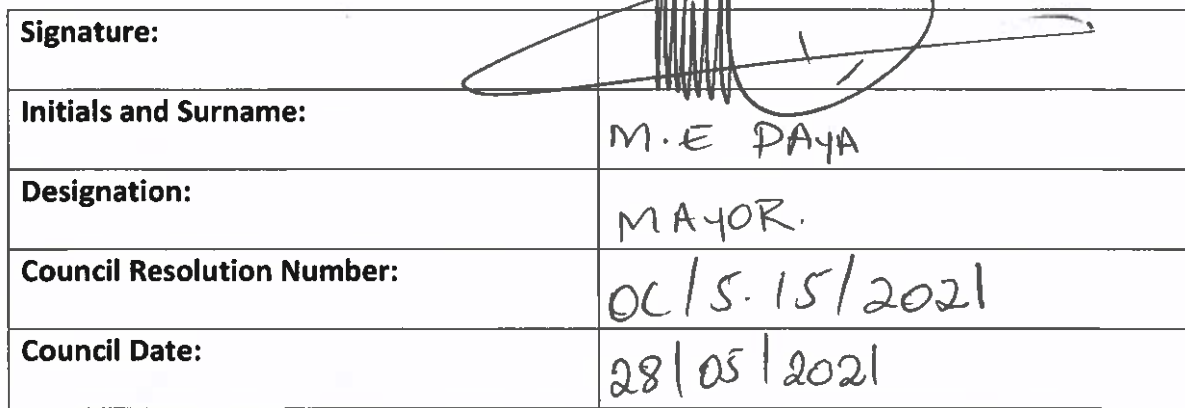 Signature:
Initials and Surname: M.E PAYA
Designation: MAYOR.
Council Resolution Number: OC/5.15/2021
Council Date: 28/05/2021